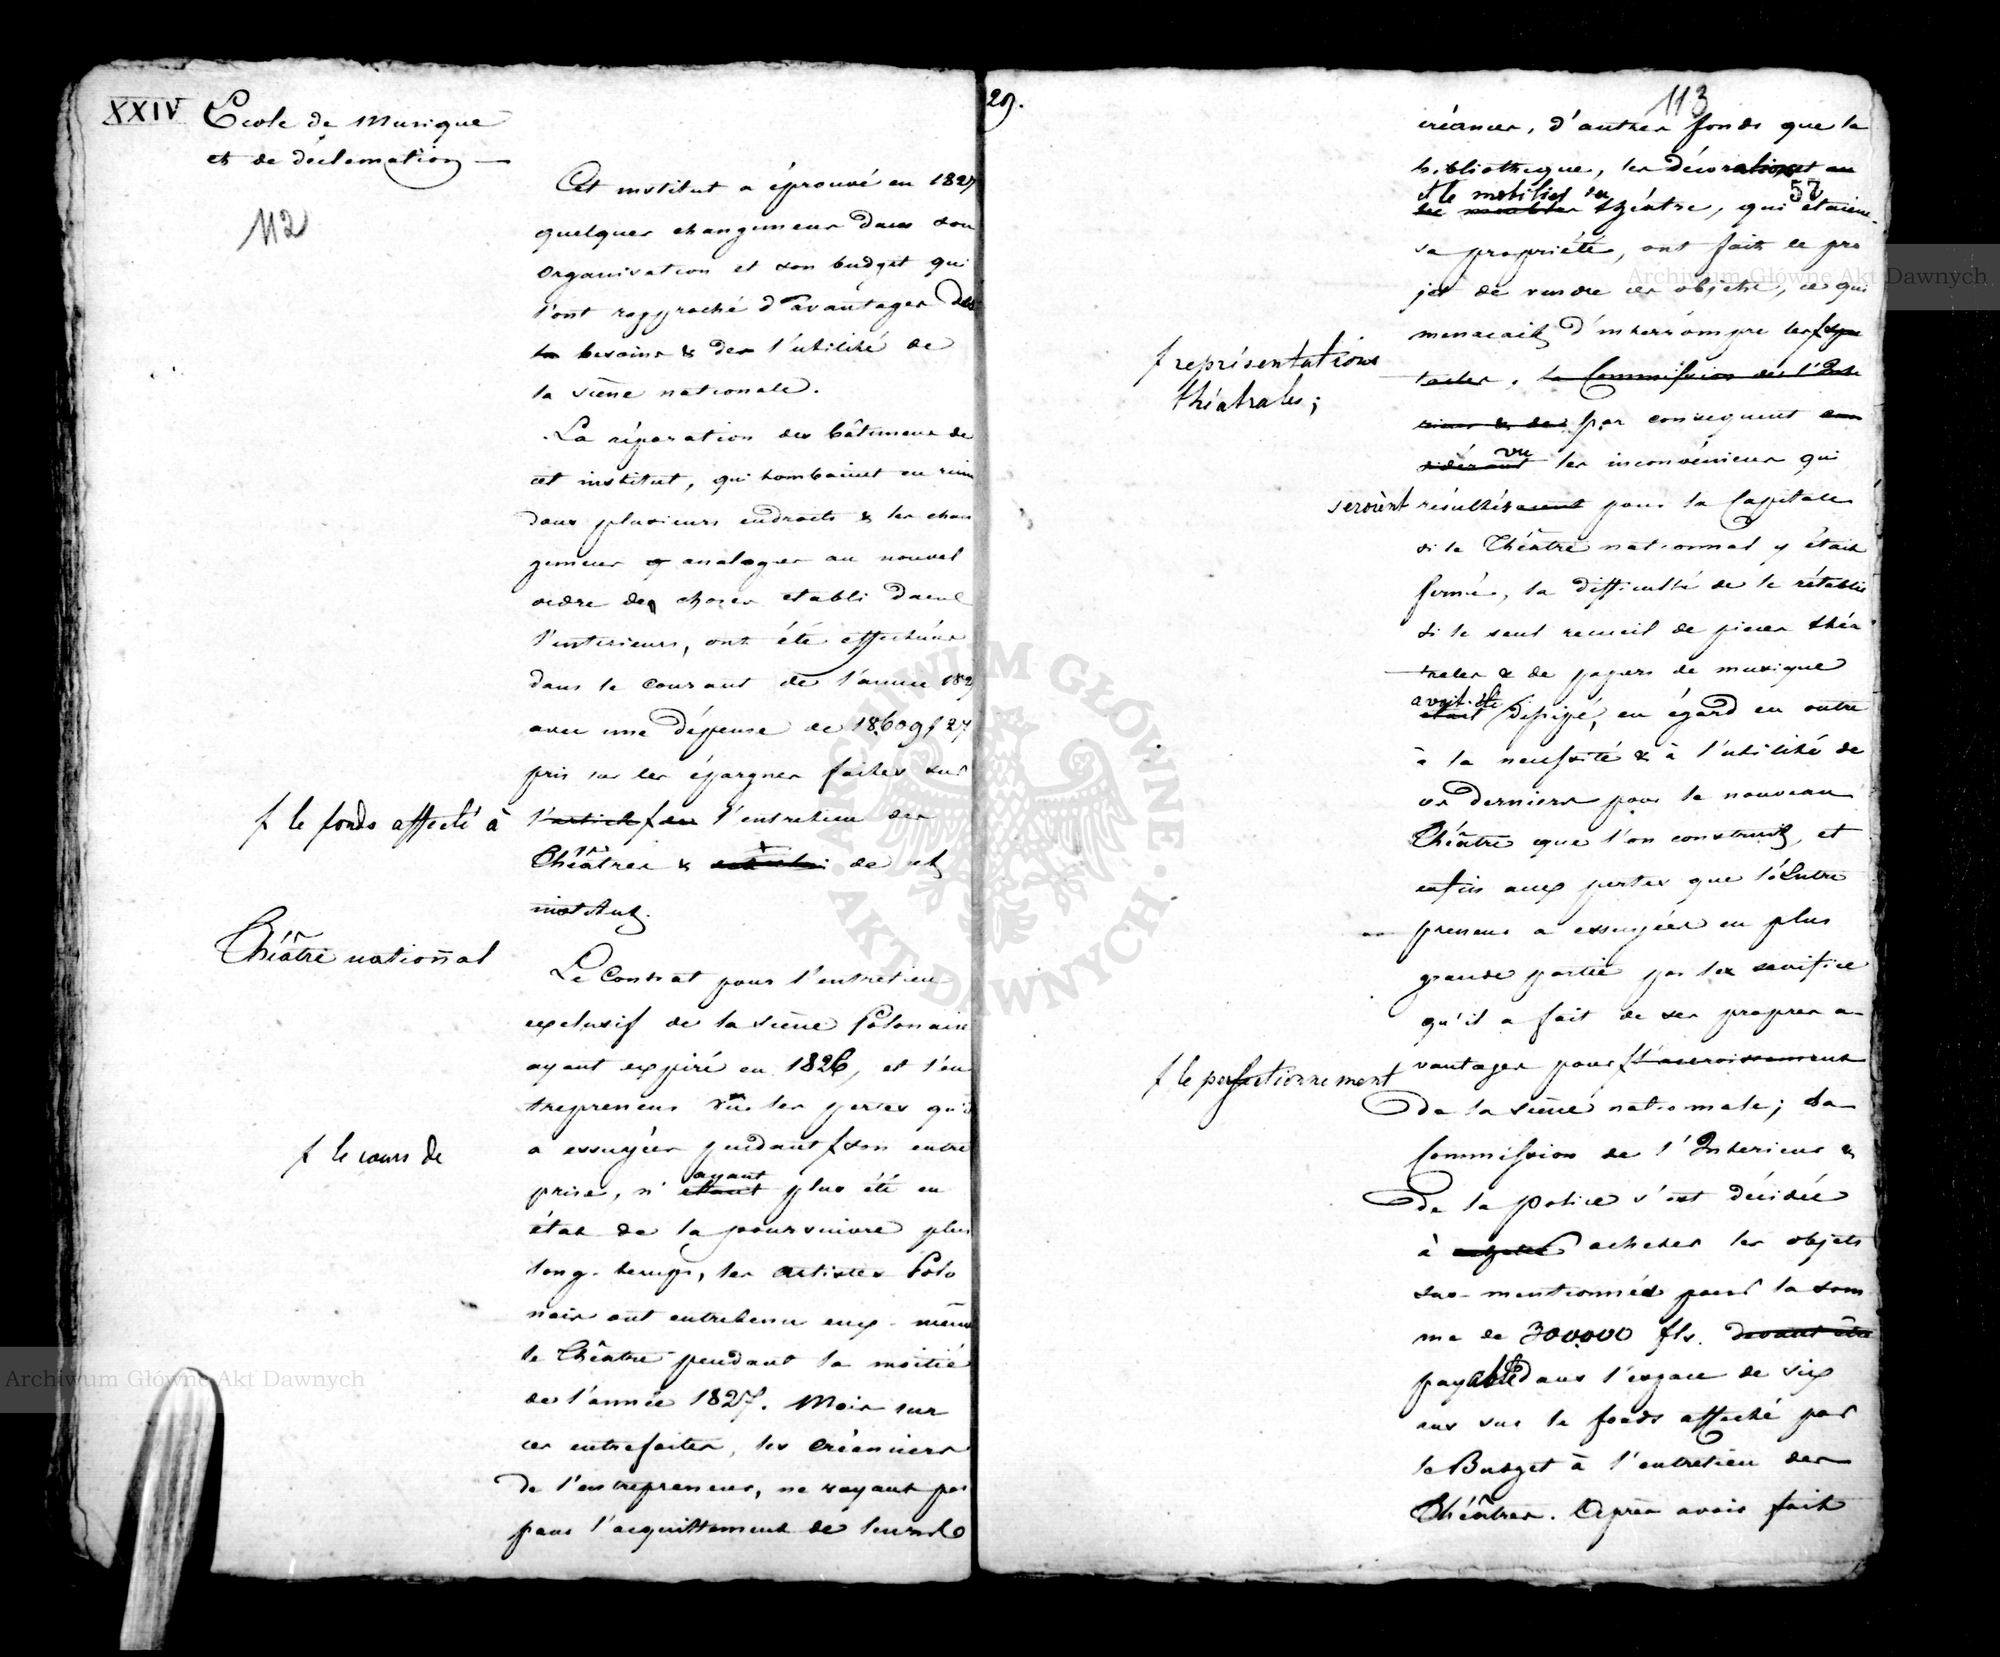 XXIV
Ecole de Musique
et de déclamation
112
Cet institut a éprouvé en 1827
quelques changemens dans son
organisation et son budget qui
l'ont rapproché d'avantage des
besoins & de l'utilité de
la scène nationale.
La réparation des bâtimens de
cet institut, qui tombaient en ruine
dans plusieurs endroits & les chan
gemens analogues au nouvel
ordre de choses etabli dans
l'interieur, ont été effectués
dans le courant de l'année 182
avec une dépense de 18,609 f 27
pris sur les épargnes faites sur
f le fonds affecté à
l'article f l'entretien des
Théâtres & de cet
institut.
Théâtre national
Le Contrat pour l'entretien
exclusif de la scène Polonaise
ayant expiré en 1826, et l'en
trepreneur vu les pertes qu'il
a essuyées pendant f son entre
f le cours de
ayant
prise, n'etant plus été en
état de la poursuivre plus
long-temps, les artistes Polo
nais ont entretenu eux-mêmes
le Théâtre pendant la moitié
de l'année 1827. Mais sur
ces entrefaites, les créanciers
de l'entrepreneur, ne voyant pas
pour l'acquittement de leurs
29.
113
57
créances, d'autres fonds que la
bibliothèque, les décorations et
et le mobilier du
théâtre, qui étaient
sa propriété, ont fait le pro
jet de vendre ces objets, ce qui
menacait d'interrompre les f spec
f représentations
théatrales;
tacles. la Commission de l'Inté
rieur & de par consequent con
vu
sidérant les inconvéniens qui
seroient résultés pour la Capitale
si le Théâtre national y était
fermé, la difficulté de le rétablir
si le seul recueil de pièces théa
trales & de papiers de musique
avoit été
était dissipé, eu égard en outre
à la necessité & à l'utilité de
ces derniers pour le nouveau
Théâtre que l'on construit, et
enfin aux pertes que l'Entre
preneur a essuyées en plus
grande partie par le sacrifice
qu'il a fait de ses propres a
vantages pour f l'accroissement
f le perfectionnement
de la scène nationale; la
Commission de l'Interieur &
de la Police s'est décidée
à acheter les objets
sus-mentionnés pour la som
me de 300000 fls. devant être
payable dans l'espace de six
ans sur le fonds affecté par
le Budget à l'entretien des
Théâtres. Après avoir fait
Archiwum Główne Akt Dawnych
Archiwum Główne Akt Dawnych
ARCHIWUM GŁÓWNE AKT DAWNYCH